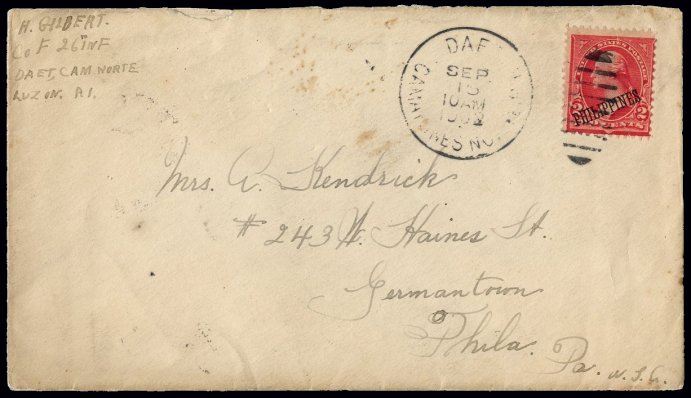 H. GILBERT.
Co F 26 INF
DAET, CAM. NORTE
LUZON. P.I.
DAET
CAMARINES NO.
SEP
10AM
PHILIPPINES
2 CENTS 2
Mrs. A. Kendrick
# 243 W. Haines St.
Germantown
Phila.
Pa. U.S.A.